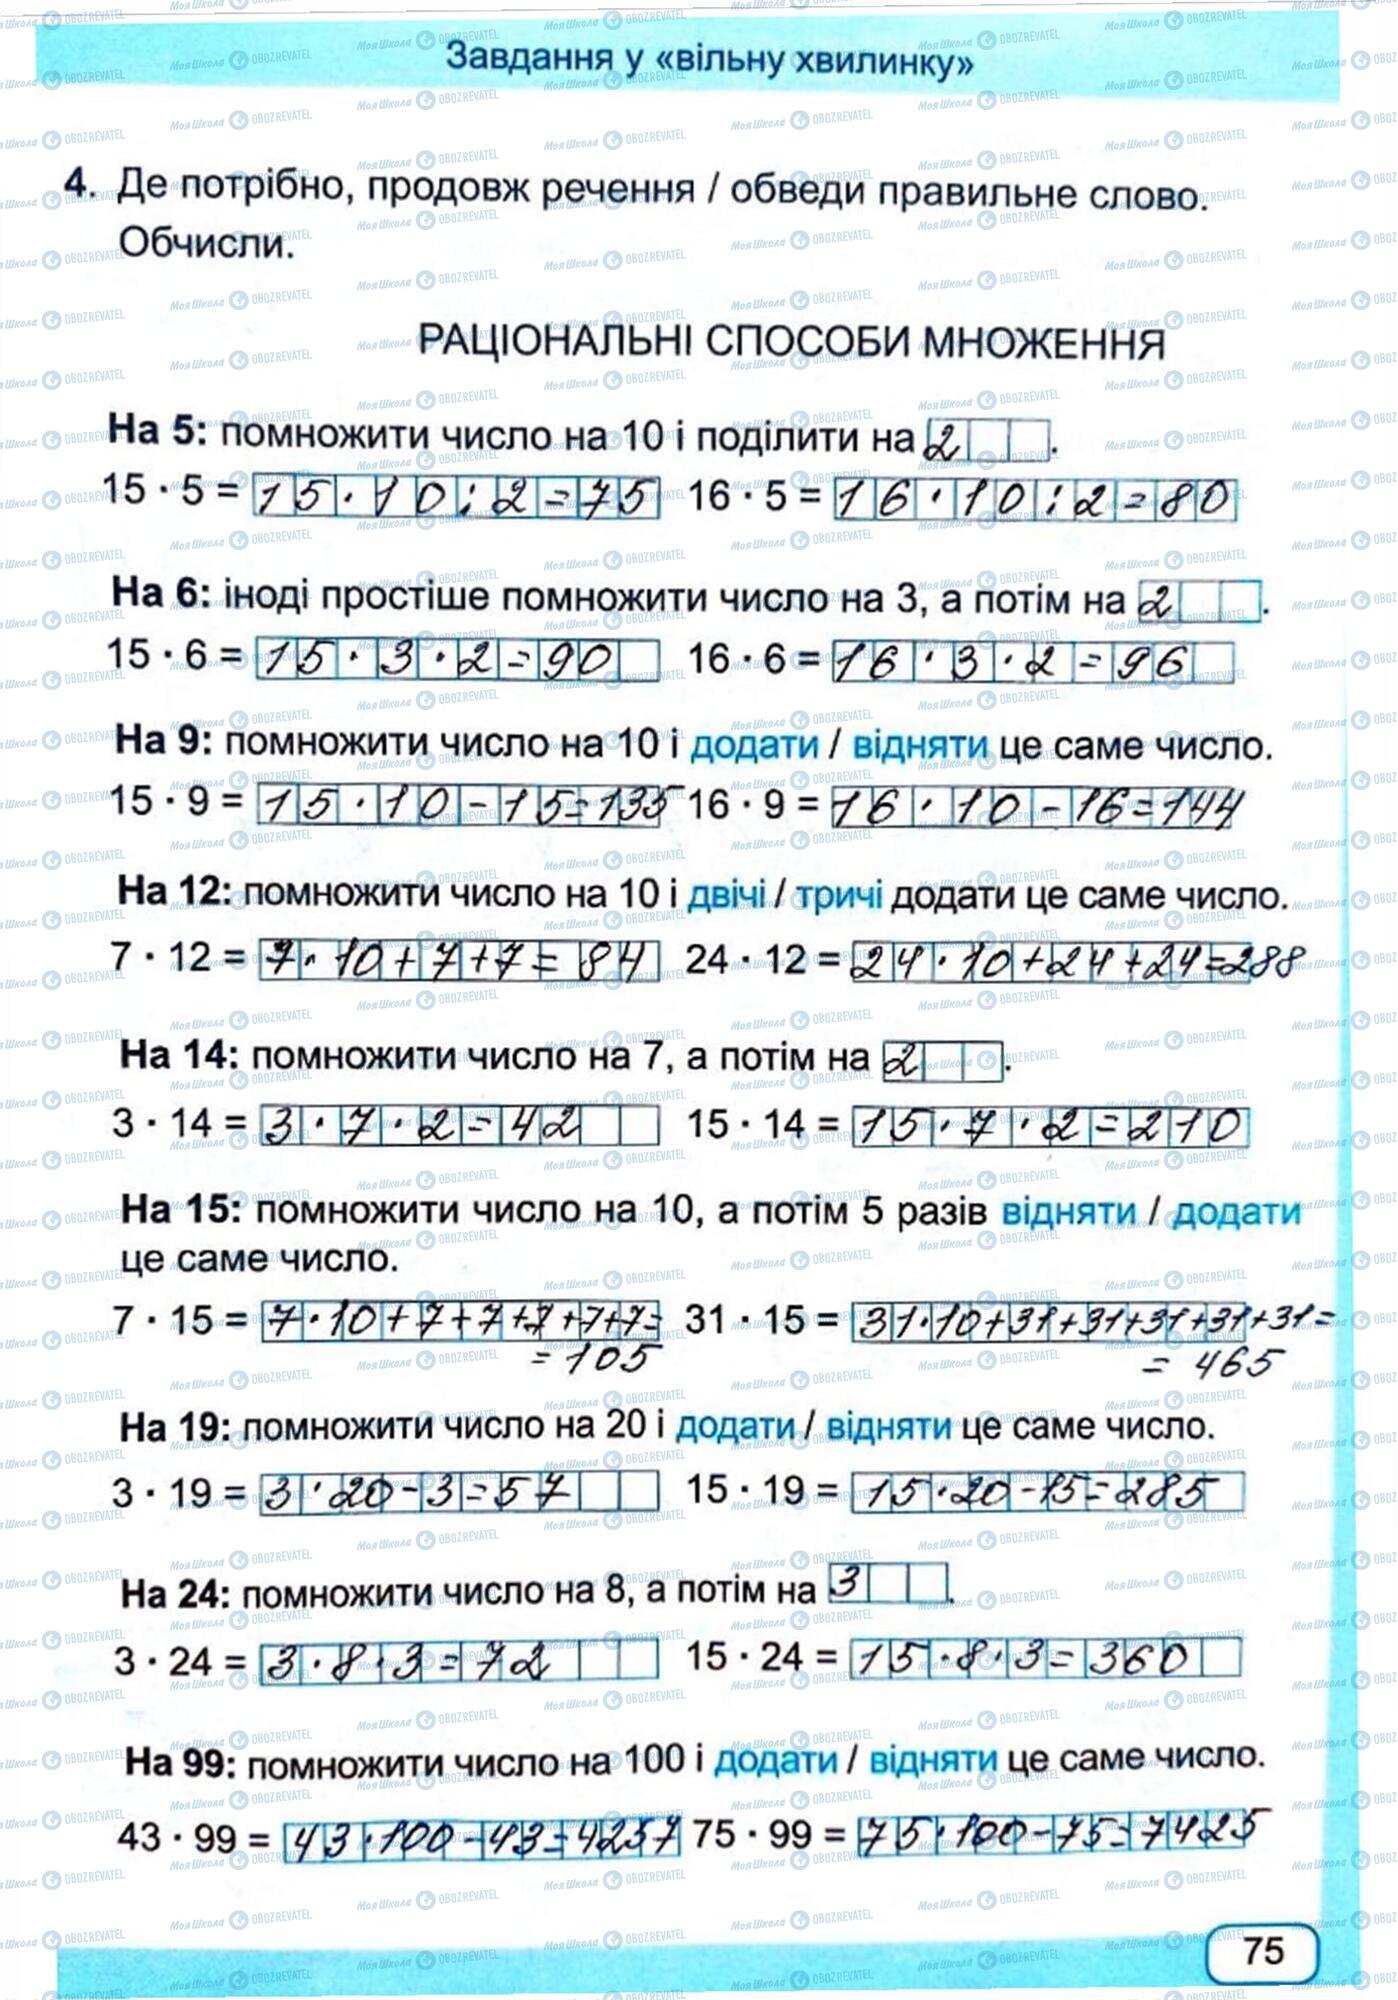 Завдання у «вільну хвилинку»
4. Де потрібно, продовж речення / обведи правильне слово.
Обчисли.
РАЦІОНАЛЬНІ СПОСОБИ МНОЖЕННЯ
На 5: помножити число на 10 і поділити на 2.
15 · 5 = 15·10:2=75 16 · 5 = 16·10:2=80
На 6: іноді простіше помножити число на 3, а потім на 2.
15 · 6 = 15·3·2=90 16 · 6 = 16·3·2=96
На 9: помножити число на 10 і додати / відняти це саме число.
15 · 9 = 15·10-15=135 16 · 9 = 16·10-16=144
На 12: помножити число на 10 і двічі / тричі додати це саме число.
7 · 12 = 7·10+7+7=84 24 · 12 = 24·10+24+24=288
На 14: помножити число на 7, а потім на 2.
3 · 14 = 3·7·2=42 15 · 14 = 15·7·2=210
На 15: помножити число на 10, а потім 5 разів відняти / додати
це саме число.
7 · 15 = 7·10+7+7+7+7+7= 31 · 15 = 31·10+31+31+31+31+31=
= 105 = 465
На 19: помножити число на 20 і додати / відняти це саме число.
3 · 19 = 3·20-3=57 15 · 19 = 15·20-15=285
На 24: помножити число на 8, а потім на 3.
3 · 24 = 3·8·3=72 15 · 24 = 15·8·3=360
На 99: помножити число на 100 і додати / відняти це саме число.
43 · 99 = 43·100-43=4257 75 · 99 = 75·100-75=7425
75
Моя Школа OBOZREVATEL